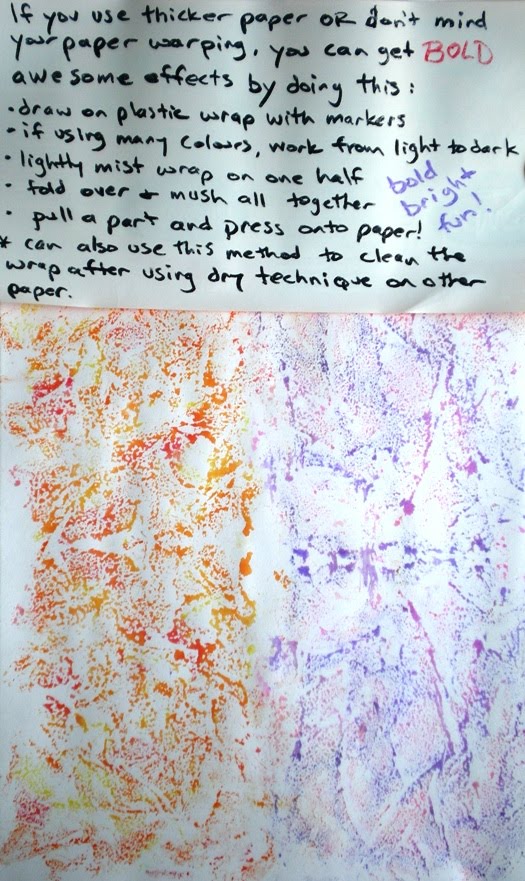 If you use thicker paper OR don't mind
your paper warping, you can get BOLD
awesome effects by doing this:
· draw on plastic wrap with markers
· if using many colours, work from light to dark
· lightly mist wrap on one half
· fold over + mush all together
· pull apart and press onto paper!
bold
bright
fun!
* can also use this method to clean the
wrap after using dry technique on other
paper.